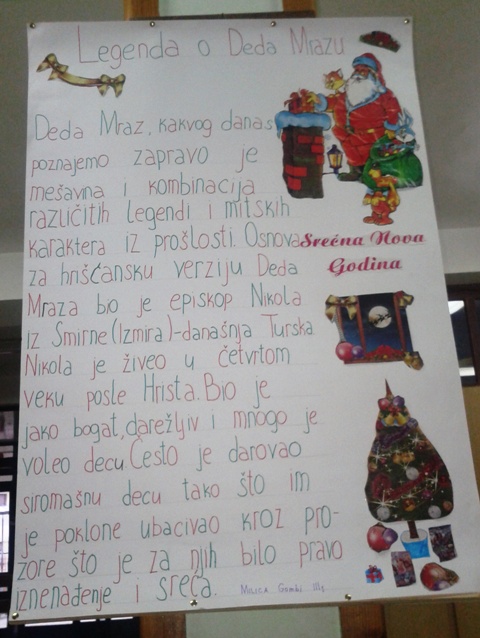 Legenda o Deda Mrazu
Deda Mraz, kakvog danas
poznajemo zapravo je
mešavna i kombinacija
različitih legendi i mitskih
karaktera iz prošlosti. Osnova
za hrišćansku verziju Deda
Mraza bio je episkop Nikola
iz Smirne (Izmira)-današnja Turska
Nikola je živeo u četvrtom
veku posle Hrista. Bio je
jako bogat, darežljiv i mnogo je
voleo decu. Često je darovao
siromašnu decu tako što im
je poklone ubacivao kroz pro-
zore što je za njih bilo pravo
iznenađenje i sreća.
Srećna Nova
Godina
Milica